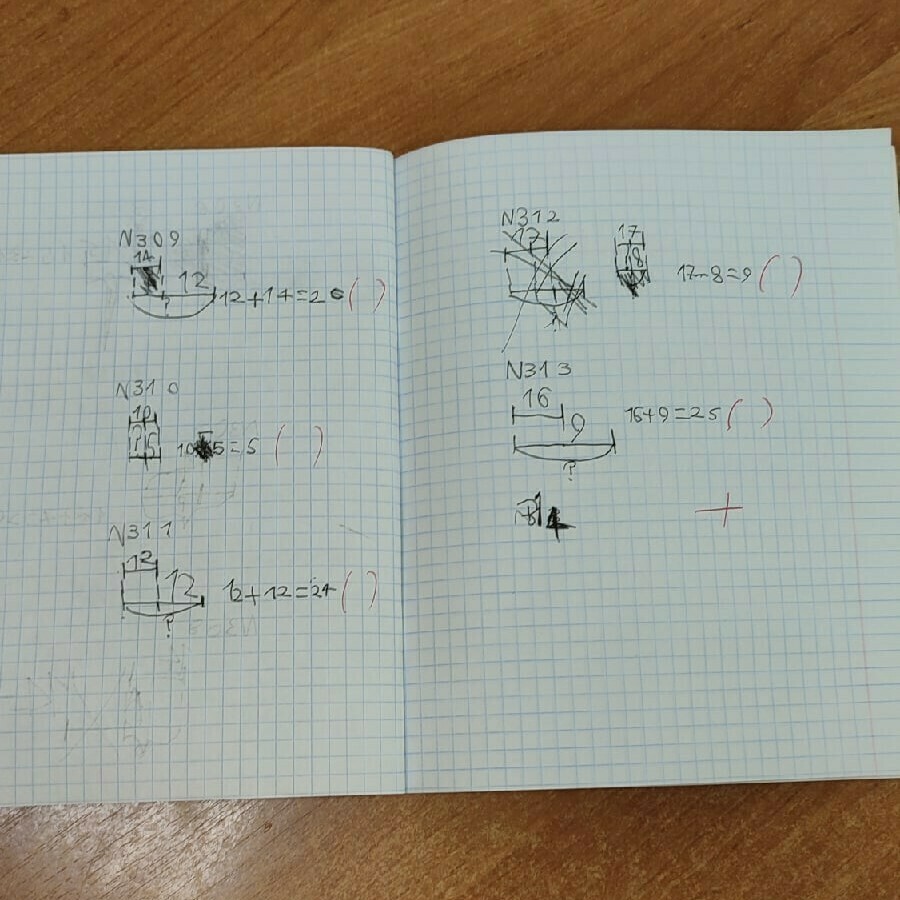 N309
14
12
?
12+14=26()
N310
10
? 5
5=5 ()
N311
12
12
?
12+12=24()
N312
17
17
?8
17-8=9()
N313
16
9
?
16+9=25()
+